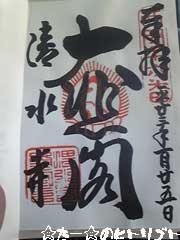 奉拝
平成廿三年一月廿五日
大悲閣
清水寺
☆たー☆のヒトリゴト